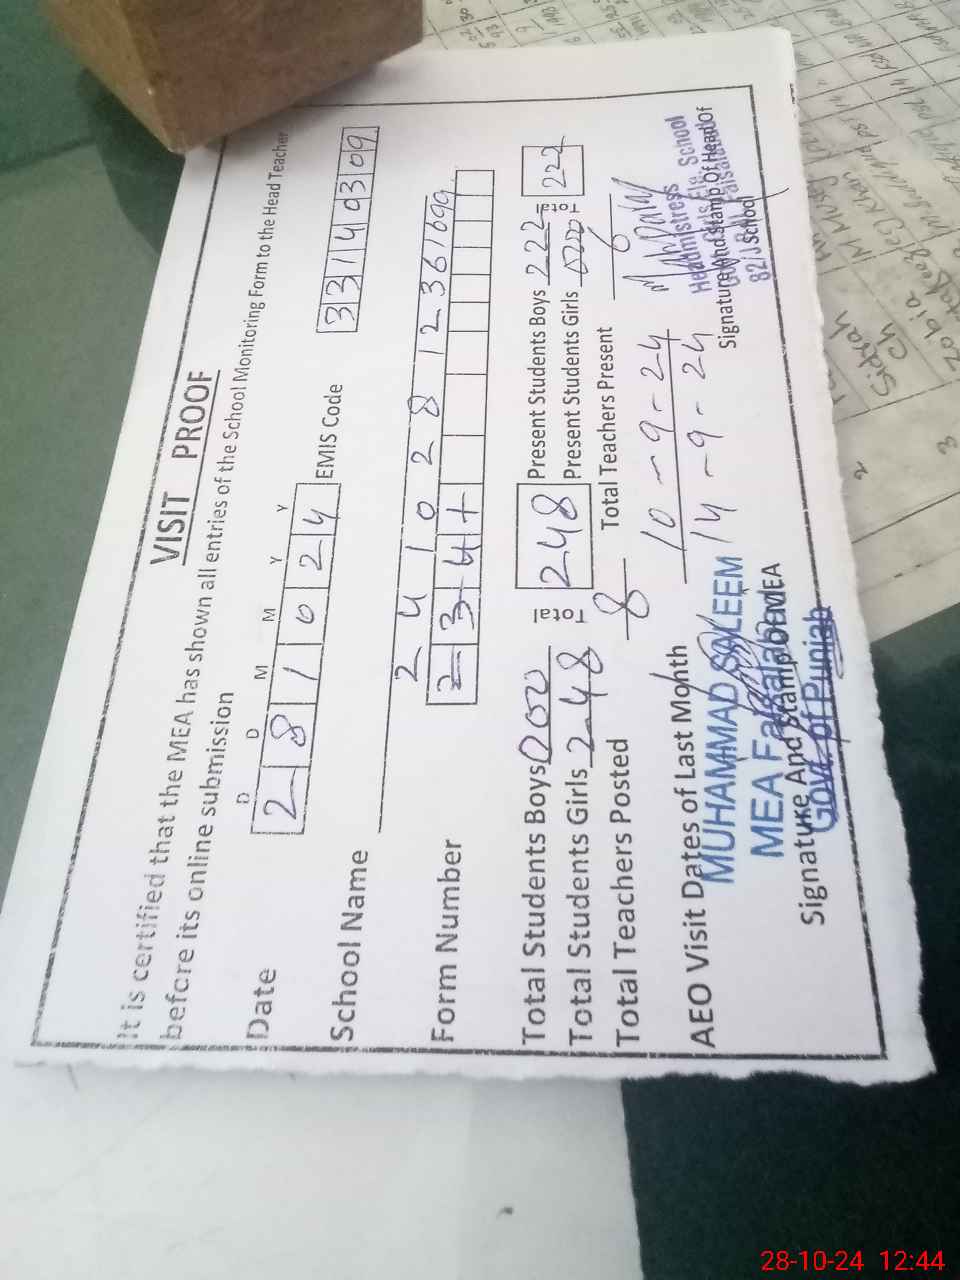 VISIT PROOF
It is certified that the MEA has shown all entries of the School Monitoring Form to the Head Teacher
before its online submission
D D M M Y Y
Date 2 8 1 0 2 4 EMIS Code 3 3 1 4 9 3 0 9
School Name
2 4 1 0 2 8 1 2 3 6 1 6 9 9
Form Number 2 3 4 1
Total Students Boys 000 Total 248 Present Students Boys 222 Total 222
Total Students Girls 248 Present Students Girls
Total Teachers Posted 8 Total Teachers Present 6
AEO Visit Dates of Last Month 10-9-24
14-9-24
MUHAMMAD SALEEM
MEA Faisalabad
Govt of Punjab
Signature And Stamp of MEA
Headmistress
Govt. Girls Ele. School
82/J.B. Faisalabad
Signature And Stamp Of Head Of
School
Sidrah
Ch
Zobia
2
3
28-10-24 12:44